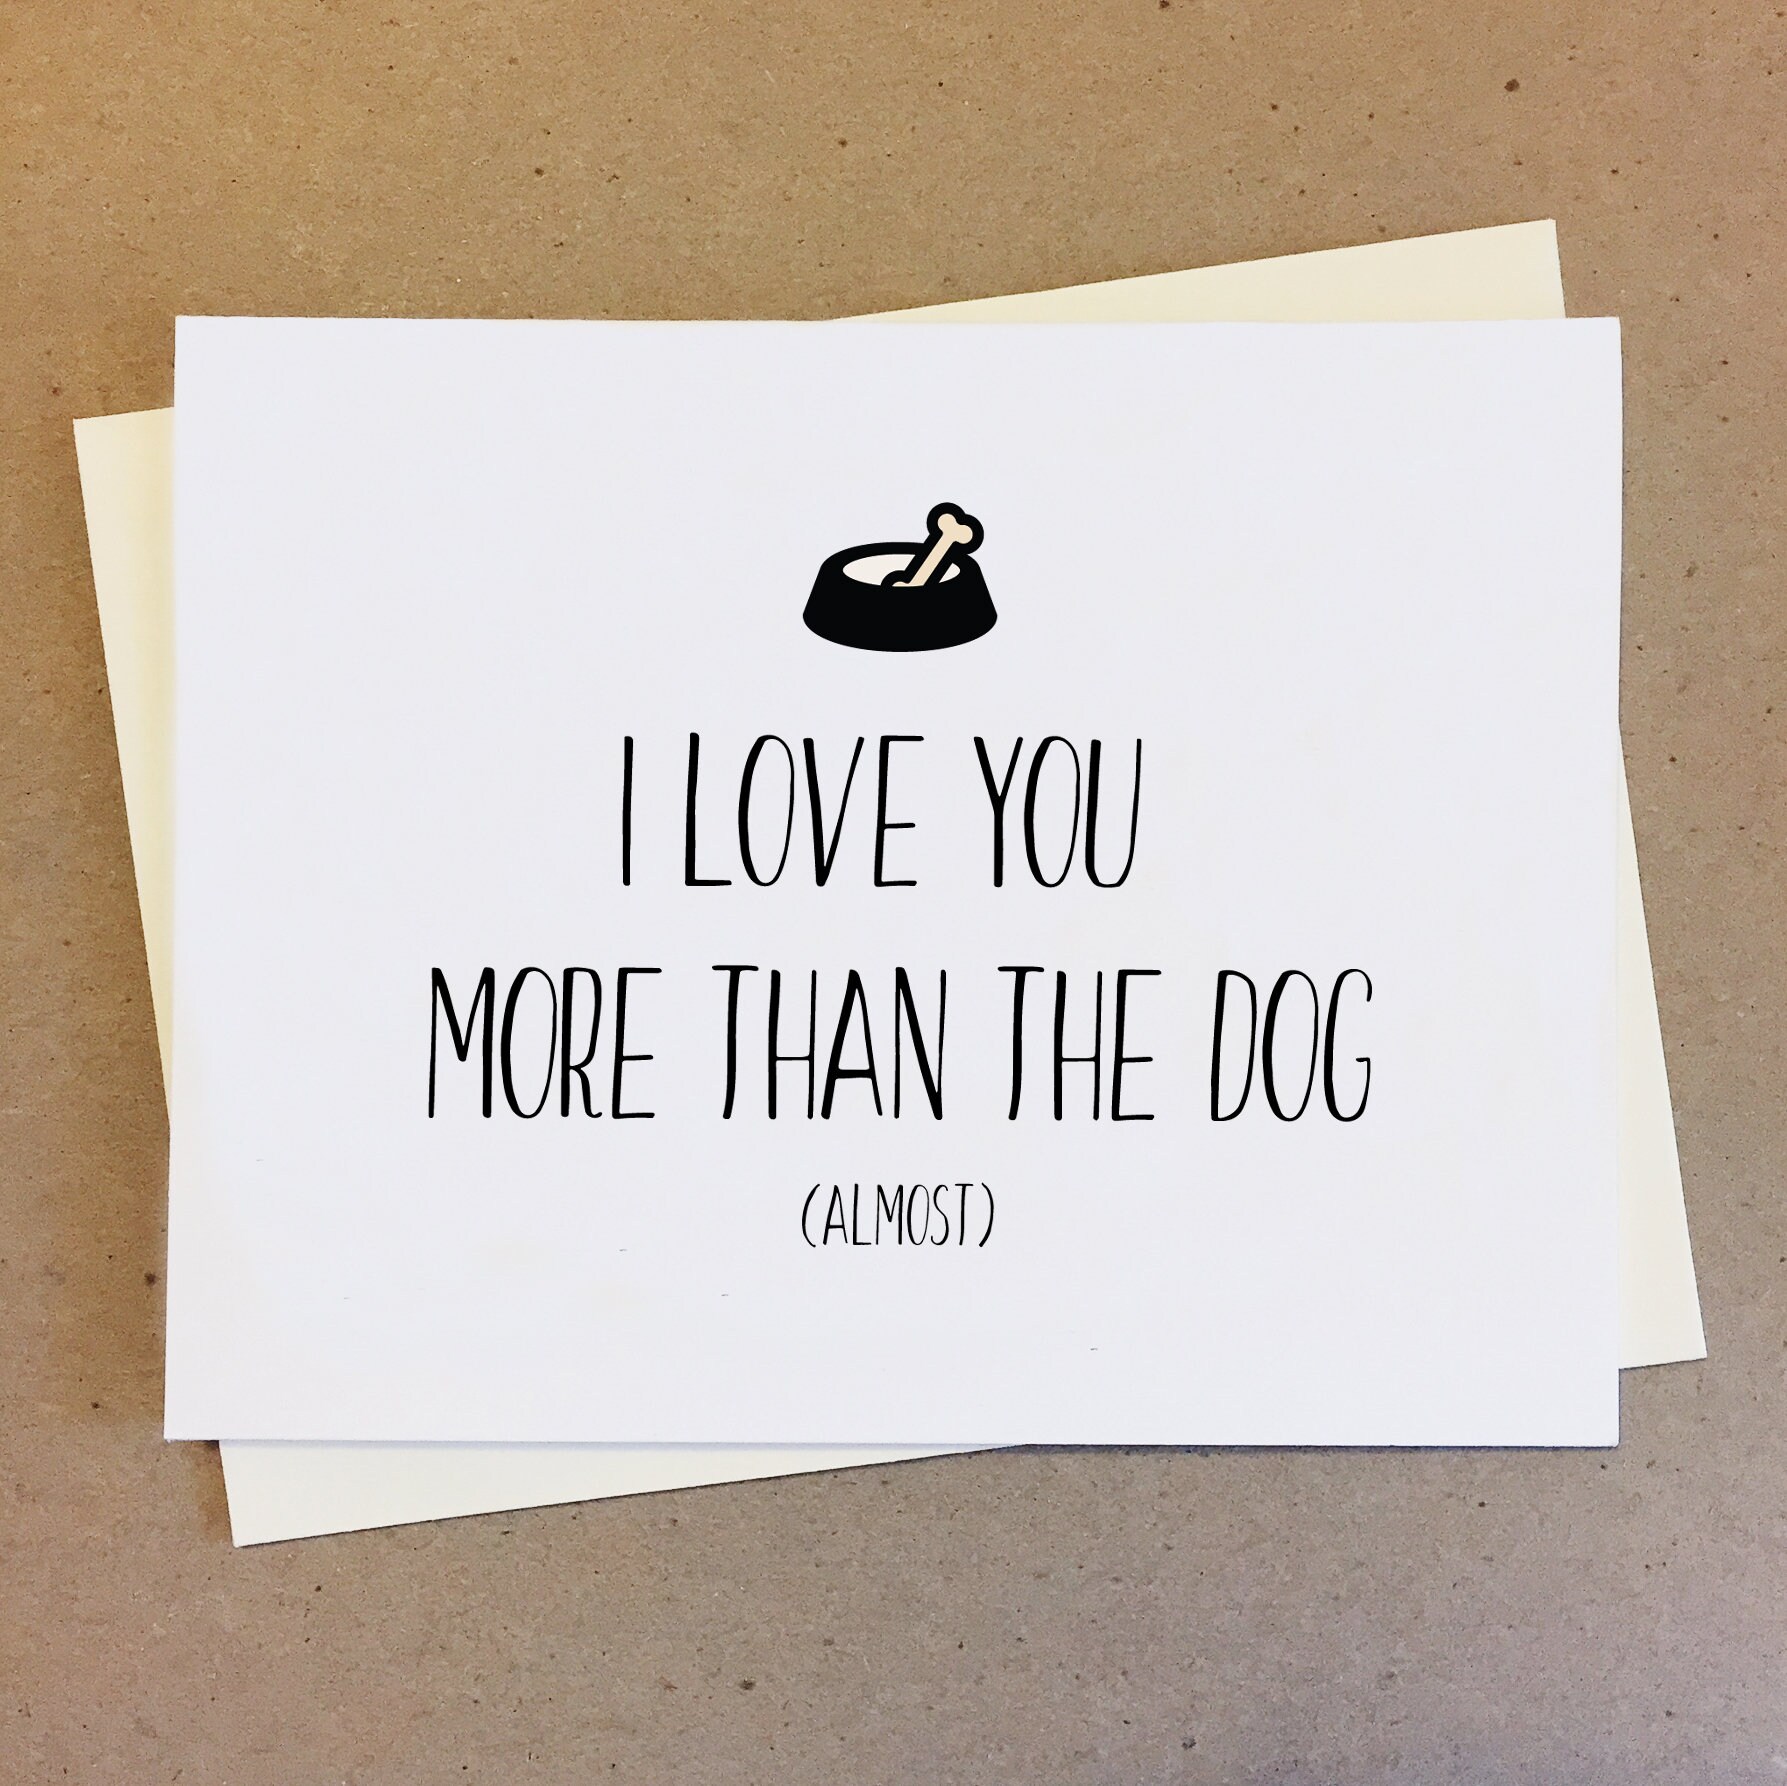 I LOVE YOU
MORE THAN THE DOG
(ALMOST)